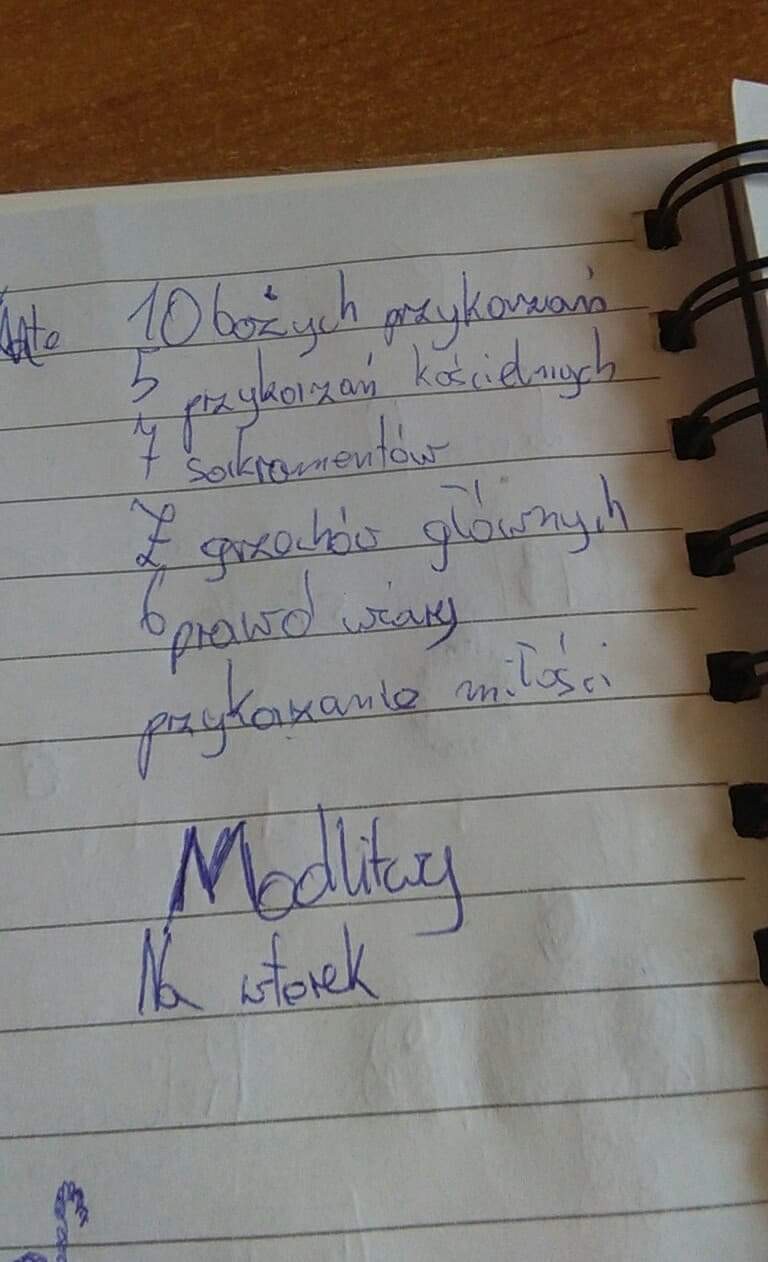 10 bożych przykazań
5 przykazań kościelnych
7 sakramentów
7 grzechów głównych
6 prawd wiary
przykazanie miłości
Modlitwy
Na wtorek